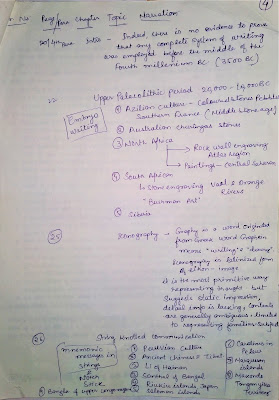 Page/Para Chapter Topic Narration
4
Intro - Indeed there is no evidence to prove
that any complete system of writing
was employed before the middle of the
Fourth millennium BC (3500 BC)
Embryo
writing
Upper Palaeolithic period 20,000 - 10,000 BC
① Azilian culture - Coloured Stones Pebbles
Southern France (Middle stone age)
② Australian churingas stones
③ North Africa
→ Rock wall engraving
Atlas region
→ Paintings - Central Sahara
④ South African
↳ Stone engraving Vaal & Orange
Rivers
"Bushman Art"
⑤ Siberia
25
Iconography - Graphy is a word originated
from Greek word Graphein
means "writing" & "drawing".
Iconography is latinized form
of eikon - image
it is the most primitive way
representing thought but
suggests static impression,
detail info is lacking, contents
are generally ambiguous - limited
to representing familiar subject
26
String Knotted Communication
mnemonic
message in
strings
Notch
Stick
① Peruvian Culture
② Ancient Chinese & Tibet
③ Li of Hainan
④ Santhals of Bengal
⑤ Riukiu islands Japan
Solomon islands
⑥ Caroline in
Pelew
⑦ Marquesan
islands
⑧ Makonde
Tanganyika
Territory